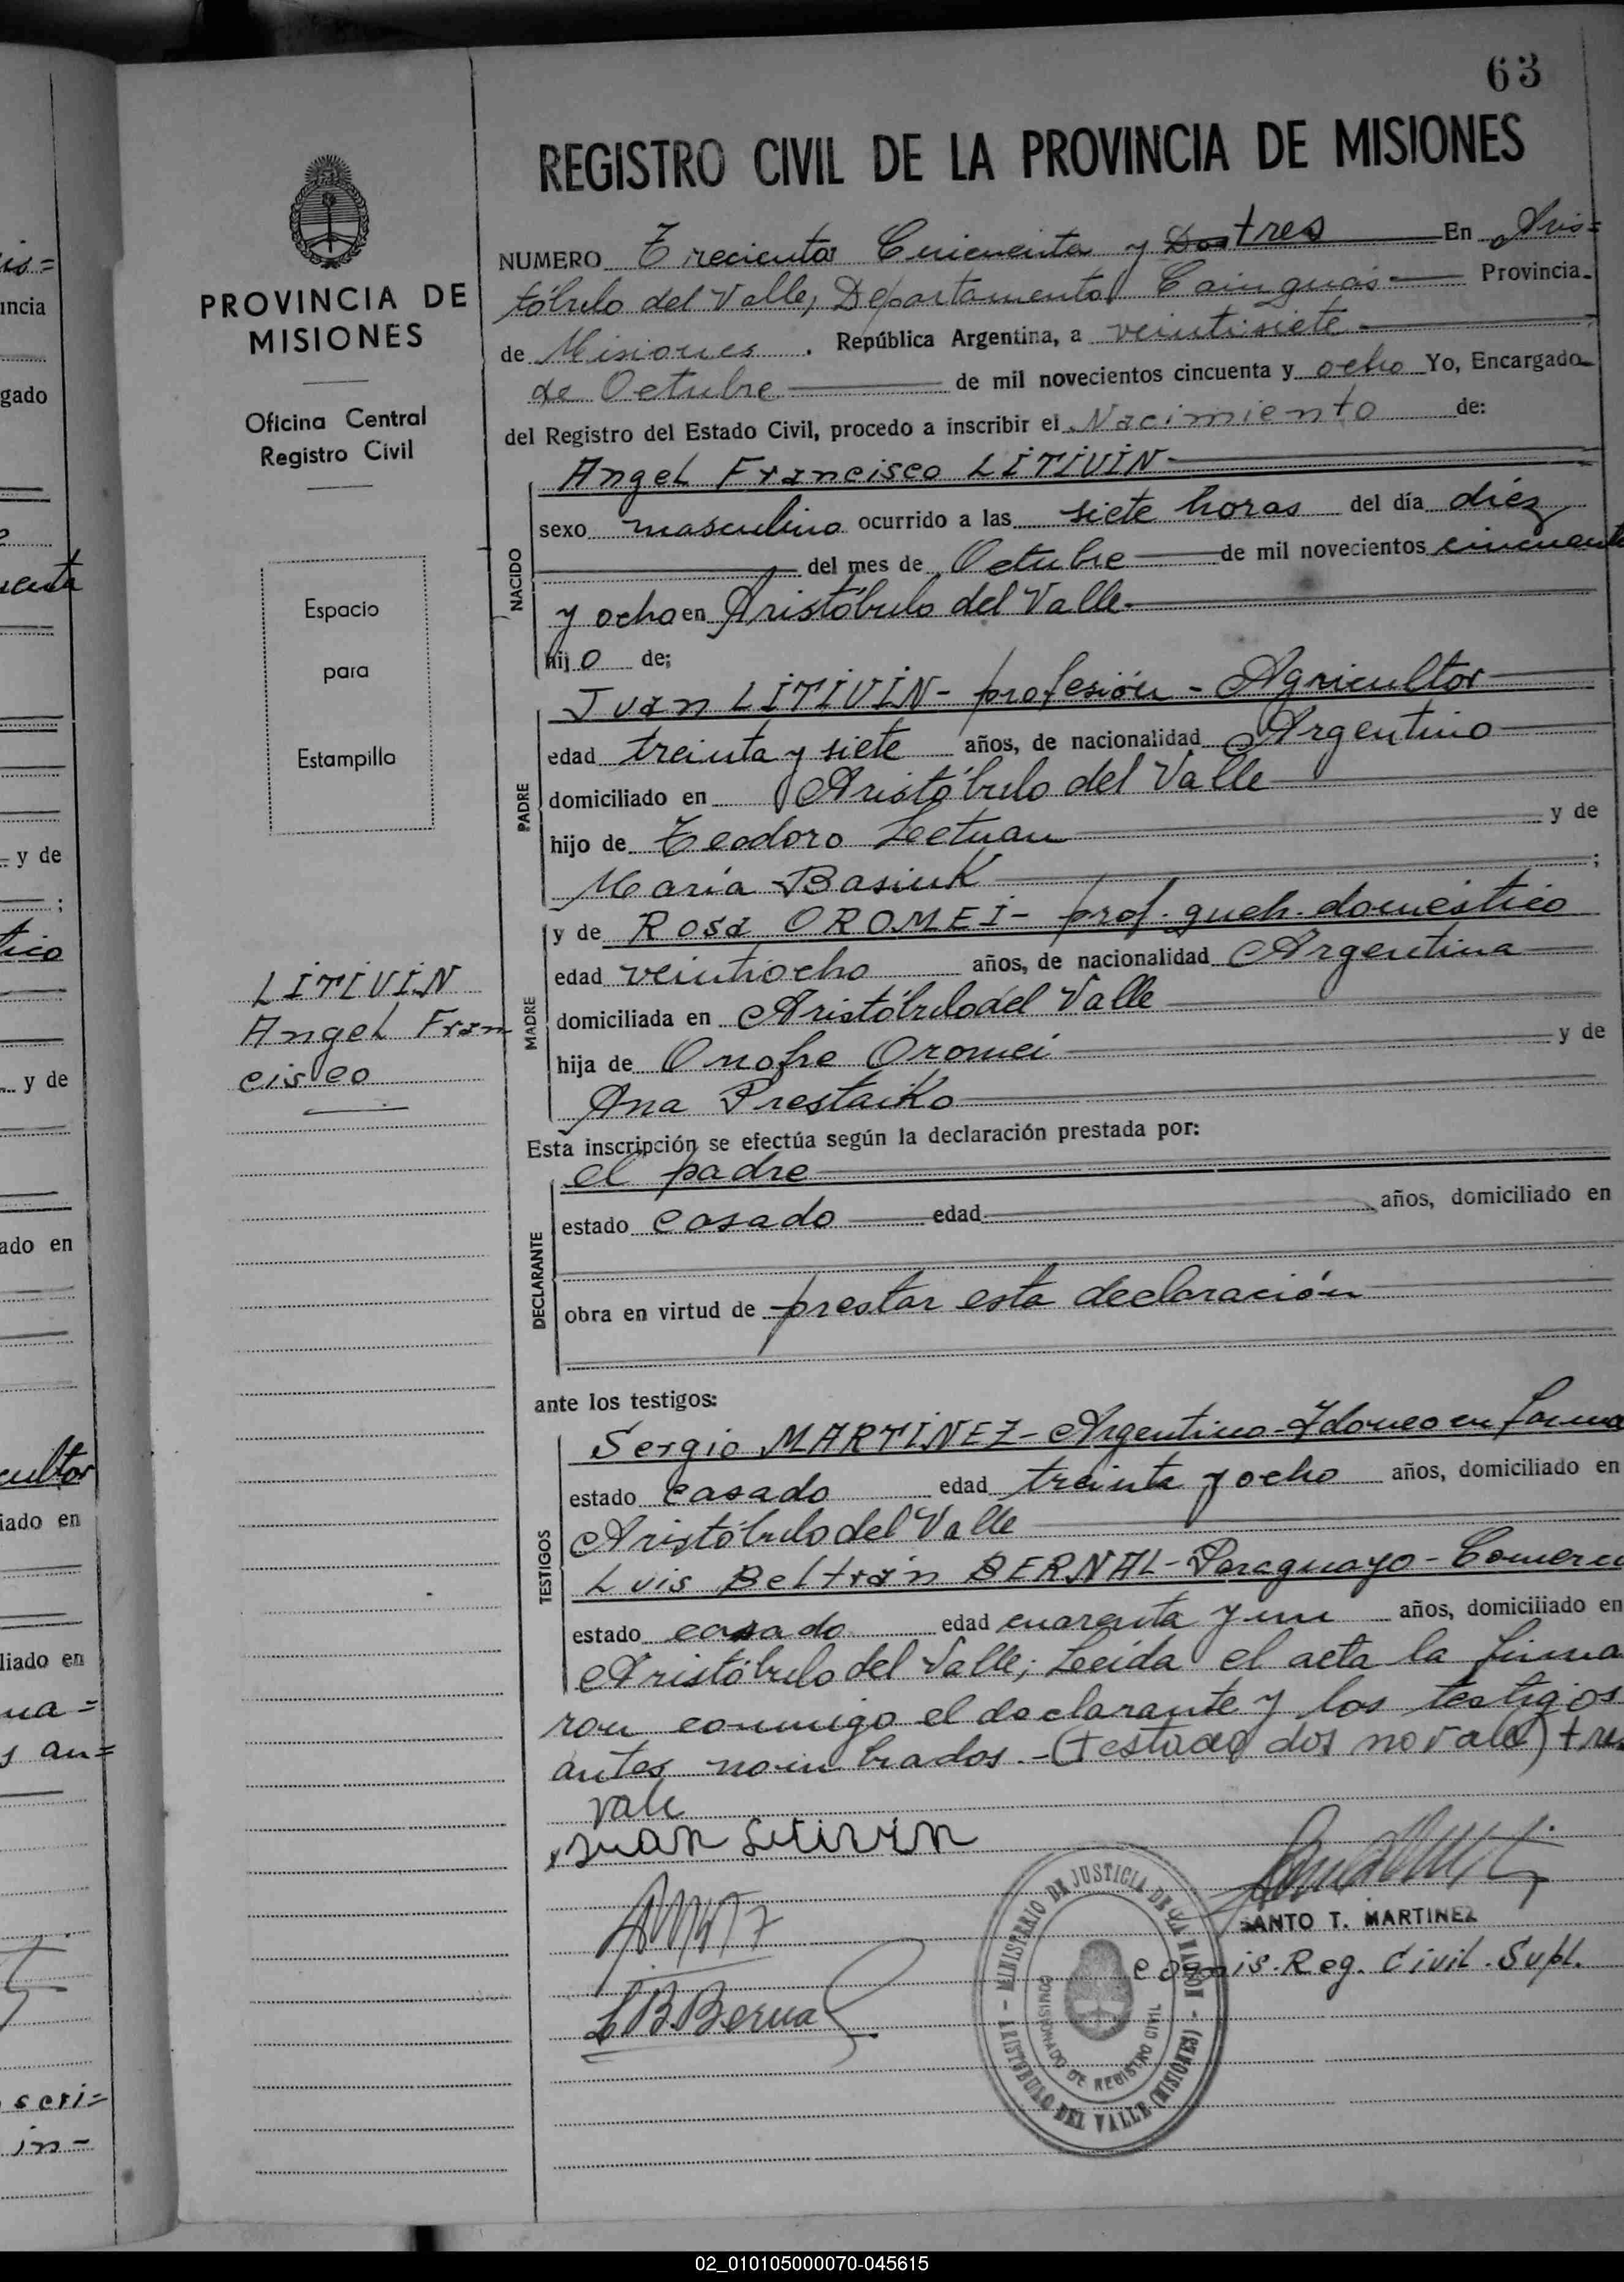 63
REGISTRO CIVIL DE LA PROVINCIA DE MISIONES
PROVINCIA DE
MISIONES
Oficina Central
Registro Civil
Espacio
para
Estampilla
LITIVIN
Angel Fran
cisco
NUMERO Trecientos Cincuenta y Dos tres En Aris=
tóbulo del Valle, Departamento Cainguás Provincia
de Misiones . República Argentina, a veintisiete
de Octubre de mil novecientos cincuenta y ocho Yo, Encargado
del Registro del Estado Civil, procedo a inscribir el Nacimiento de:
NACIDO
Angel Francisco LITIVIN
sexo masculino ocurrido a las siete horas del día diéz
del mes de Octubre de mil novecientos cincuenta
y ocho en Aristóbulo del Valle
hijo de;
PADRE
Juan LITIVIN - profesión - Agricultor
edad treinta y siete años, de nacionalidad Argentino
domiciliado en Aristóbulo del Valle
hijo de Teodoro Leetuan y de
María Basiuk ;
MADRE
y de Rosa OROMEI - prof. queh. doméstico
edad veintiocho años, de nacionalidad Argentina
domiciliada en Aristóbulo del Valle
hija de Onofre Oromei y de
Ana Prestaiko
Esta inscripción se efectúa según la declaración prestada por:
DECLARANTE
el padre
estado casado edad años, domiciliado en
obra en virtud de prestar esta declaración
ante los testigos:
TESTIGOS
Sergio MARTINEZ - Argentino - Idoneo en Farma
estado casado edad treinta y ocho años, domiciliado en
Aristóbulo del Valle
Luis Beltrán BERNAL - Paraguayo - Comerc
estado casado edad cuarenta y un años, domiciliado en
Aristóbulo del Valle; Leída el acta la firma
ron conmigo el declarante y los testigos
antes nombrados. - (testado dos no vale) tres
vale
Juan Litivin
L B. Bernal
SANTO T. MARTINEZ
comis. Reg. Civil. Supl.
MINISTERIO DE JUSTICIA DE LA NACION - ARISTOBULO DEL VALLE (MISIONES) -
COMISIONADO DE REGISTRO CIVIL
is=
incia
gado
enta
y de
;
tico
y de
ado en
cultor
iado en
liado en
ma=
s an=
scri=
in-
02_010105000070-045615